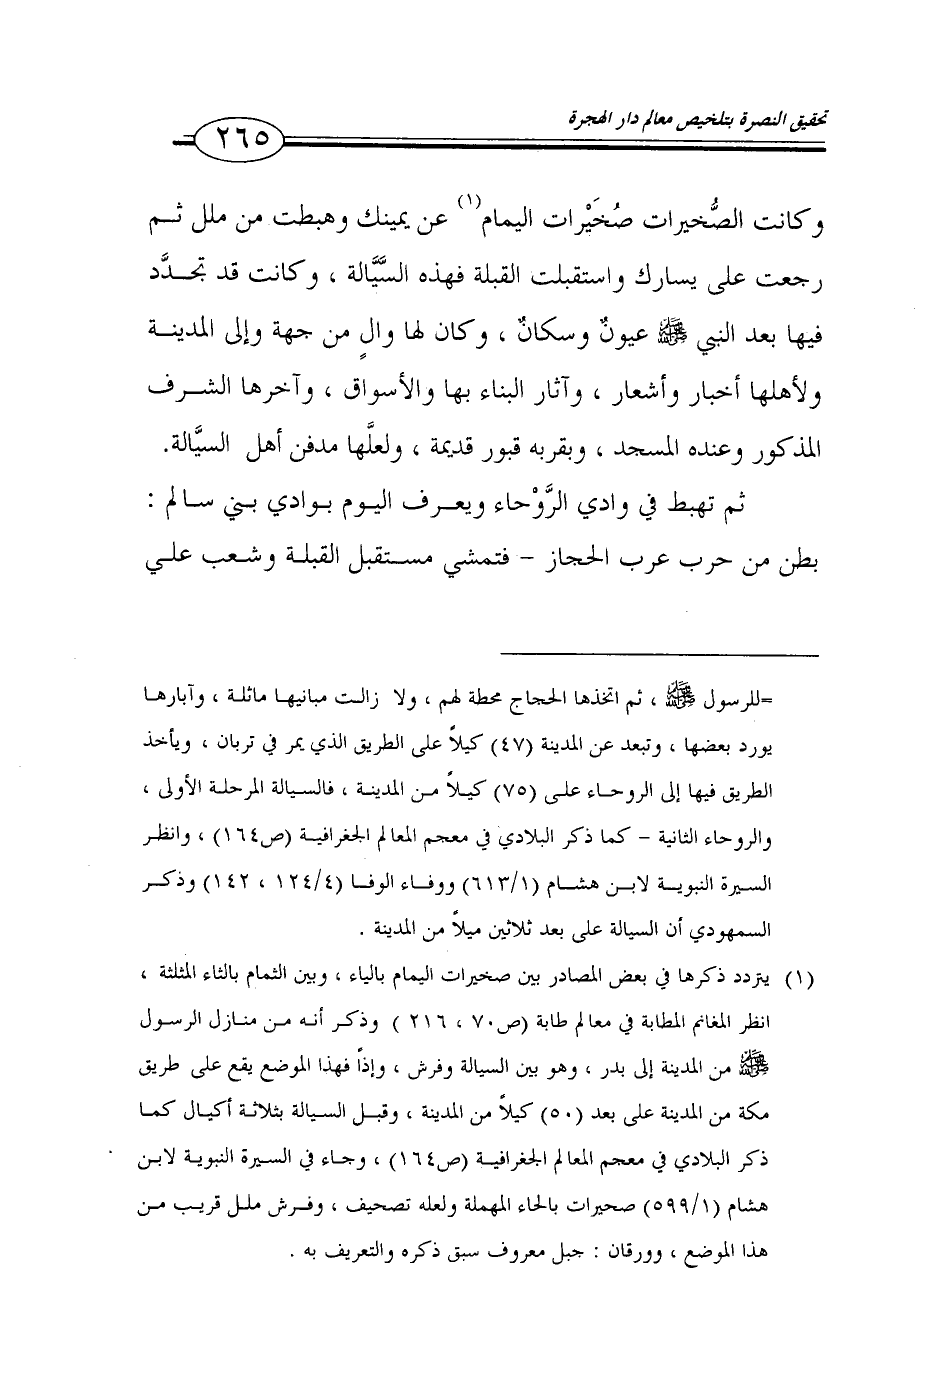 تحقيق النصرة بتلخيص معالم دار الهجرة
٢٦٥
وكانت الصُّخيرات صُخَيْرات اليمام(١) عن يمينك وهبطت من ملل ثم
رجعت على يسارك واستقبلت القبلة فهذه السَّيَّالة ، وكانت قد تجدَّد
فيها بعد النبي ﷺ عيونٌ وسكانٌ ، وكان لها والٍ من جهة وإلى المدينة
ولأهلها أخبار وأشعار ، وآثار البناء بها والأسواق ، وآخرها الشرف
المذكور وعنده المسجد ، وبقربه قبور قديمة ، ولعلَّها مدفن أهل السيَّالة.
ثم تهبط في وادي الرَّوْحاء ويعرف اليوم بوادي بني سالم :
بطن من حرب عرب الحجاز – فتمشي مستقبل القبلة وشعب علي
=للرسول ﷺ ، ثم اتخذها الحجاج محطة لهم ، ولا زالت مبانيها ماثلة ، وآبارها
يورد بعضها ، وتبعد عن المدينة (٤٧) كيلاً على الطريق الذي يمر في تربان ، ويأخذ
الطريق فيها إلى الروحاء على (٧٥) كيلاً من المدينة ، فالسيالة المرحلة الأولى ،
والروحاء الثانية – كما ذكر البلادي في معجم المعالم الجغرافية (ص١٦٤) ، وانظر
السيرة النبوية لابن هشام (٦١٣/١) ووفاء الوفا (١٢٤/٤ ، ١٤٢) وذكر
السمهودي أن السيالة على بعد ثلاثين ميلاً من المدينة .
(١) يتردد ذكرها في بعض المصادر بين صخيرات اليمام بالياء ، وبين الثمام بالثاء المثلثة ،
انظر المغانم المطابة في معالم طابة (ص٧٠ ، ٢١٦ ) وذكر أنه من منازل الرسول
ﷺ من المدينة إلى بدر ، وهو بين السيالة وفرش ، وإذاً فهذا الموضع يقع على طريق
مكة من المدينة على بعد (٥٠) كيلاً من المدينة ، وقبل السيالة بثلاثة أكيال كما
ذكر البلادي في معجم المعالم الجغرافية (ص١٦٤) ، وجاء في السيرة النبوية لابن
هشام (٥٩٩/١) صحيرات بالحاء المهملة ولعله تصحيف ، وفرش ملل قريب من
هذا الموضع ، وورقان : جبل معروف سبق ذكره والتعريف به .